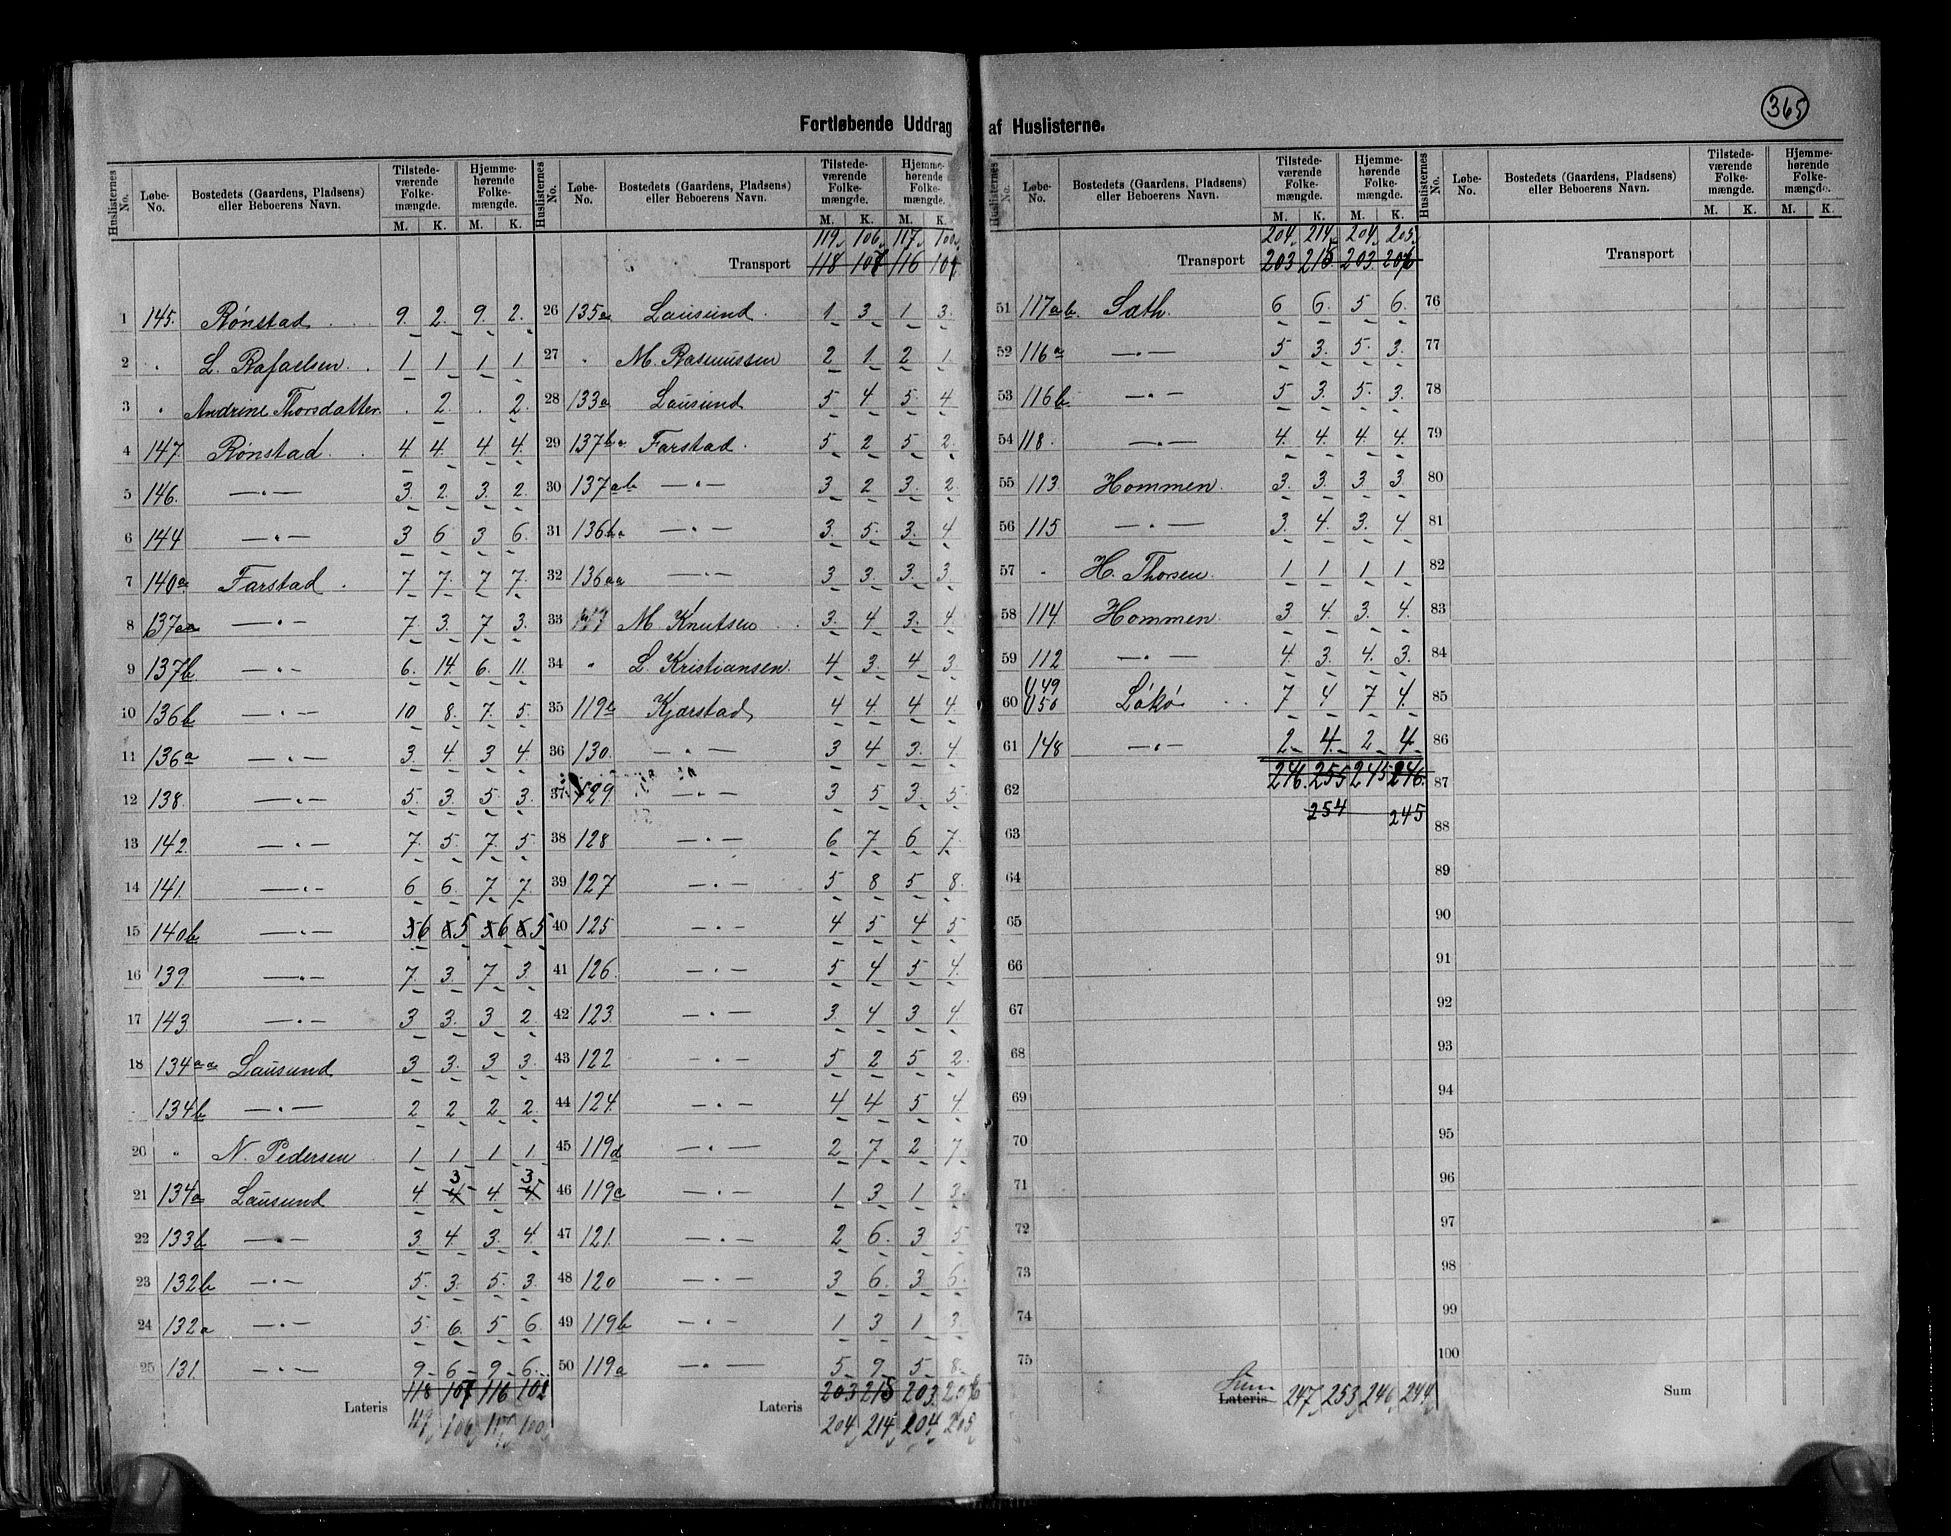 365
Fortløbende Uddrag af Huslisterne.
Huslisternes No. Løbe-No. Bostedets (Gaardens, Pladsens) eller Beboerens Navn. Tilstede-værende Folke-mængde. M. K. Hjemme-hørende Folke-mængde. M. K.
1 145. Rønstad 9. 2. 9. 2.
2 " L. Rafaelsen 1 1 1 1
3 " Andrine Thorsdatter . 2. . 2.
4 147 Rønstad 4 4. 4 4.
5 146. —"— 3. 2. 3. 2.
6 144 —"— 3 6 3 6.
7 140a Farstad 7 7. 7 7.
8 137aa —"— 7 3. 7 3.
9 137b —"— 6. 14 6. 11.
10 136b —"— 10 8. 7. 5.
11 136a —"— 3. 4. 3 4.
12 138. —"— 5. 3. 5. 3.
13 142. —"— 7. 5. 7. 5.
14 141. —"— 6 6. 7 7.
15 140b —"— 6 5 6 5
16 139. —"— 7. 3. 7. 3.
17 143. —"— 3 3. 3 2.
18 134aa Lausund 3 3. 3 3.
134b —"— 2 2 2 2.
20 " N. Pedersen 1 1 1 1
21 134a Lausund 4 3 4. 3
22 133b —"— 3. 4 3. 4.
23 132b —"— 5. 3. 5. 3.
24 132a —"— 5. 6. 5 6.
25 131. —"— 9 6 9 6.
118 107 116 102
Lateris 119 106 117 100
Huslisternes No. Løbe-No. Bostedets (Gaardens, Pladsens) eller Beboerens Navn. Tilstede-værende Folke-mængde. M. K. Hjemme-hørende Folke-mængde. M. K.
119 106 117 100
Transport 118 108 116 101
26 135a Lausund 1 3. 1 3.
27 " M. Rasmussen 2 1. 2 1
28 133a Lausund 5 4 5. 4
29 137ba Farstad 5 2 5 2.
30 137ab —"— 3 2 3. 2.
31 136ba —"— 3. 5. 3. 4
32 136aa —"— 3 3. 3. 3.
33 M. Knutsen 3. 4 3. 4.
34 " L. Kristiansen 4 3. 4 3.
35 119e Kjærstad 4 4 4 4.
36 130. —"— 3 4 3. 4
37 129 —"— 3 5 3. 5.
38 128 —"— 6 7 6 7.
39 127 —"— 5 8 5 8.
40 125 —"— 4 5 4 5
41 126. —"— 5 4 5 4.
42 123. —"— 3. 4 3 4
43 122 —"— 5 2 5 2.
44 124. —"— 4 4 5 4
45 119d —"— 2 7 2 7
46 119c —"— 1 3 1 3.
47 121. —"— 2 6. 3 5
48 120 —"— 3 6. 3 6.
49 119b —"— 1 3 1 3.
50 119a —"— 5 9 5 8.
203 215 203 206
Lateris 204 214 204 205
Huslisternes No. Løbe-No. Bostedets (Gaardens, Pladsens) eller Beboerens Navn. Tilstede-værende Folke-mængde. M. K. Hjemme-hørende Folke-mængde. M. K.
204 214 204 205
Transport 203 215 203. 206
51 117ab. Sath. 6 6. 5 6.
52 116a —"— 5 3. 5. 3.
53 116b —"— 5 3. 5. 3.
54 118. —"— 4. 4. 4 4.
55 113. Hommen. 3. 3. 3 3
56 115 —"— 3. 4. 3. 4
57 " H. Thorsen. 1 1 1 1
58 114 Hommen. 3 4. 3. 4.
59 112 —"— 4. 3. 4. 3.
60 149 150 Løkø 7 4. 7 4.
61 148 —"— 2 4. 2 4
62 246. 255 245 246.
254 245
63
64
65
66
67
68
69
70
71
72
73
74
75
Sum
Lateris 247, 253, 246, 244
Huslisternes No. Løbe-No. Bostedets (Gaardens, Pladsens) eller Beboerens Navn. Tilstede-værende Folke-mængde. M. K. Hjemme-hørende Folke-mængde. M. K.
Transport
76
77
78
79
80
81
82
83
84
85
86
87
88
89
90
91
92
93
94
95
96
97
98
99
100
Sum